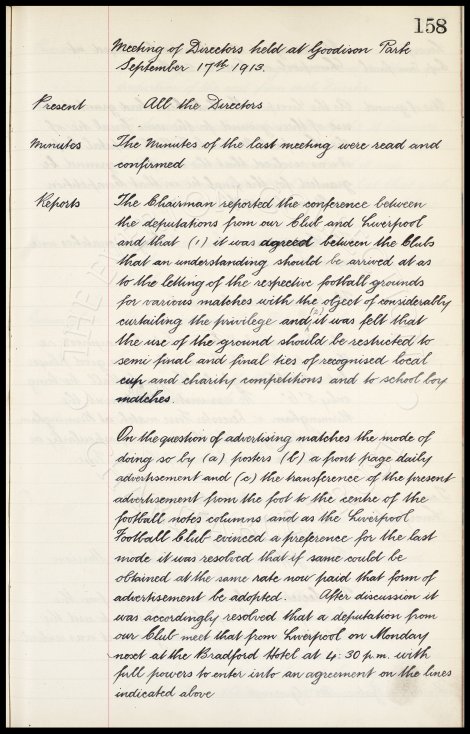 158
Meeting of Directors held at Goodison Park
September 17th 1913.
Present All the Directors
Minutes The Minutes of the last meeting were read and
confirmed
Reports The Chairman reported the conference between
the deputations from our Club and Liverpool
and that (1) it was agreed between the Clubs
that an understanding should be arrived at as
to the letting of the respective football grounds
for various matches with the object of considerably
curtailing the privilege and (2) it was felt that
the use of the ground should be restricted to
semi final and final ties of recognised local
cup and charity competitions and to school boy
matches.
On the question of advertising matches the mode of
doing so by (a) posters (b) a front page daily
advertisement and (c) the transference of the present
advertisement from the foot to the centre of the
football notes columns and as the Liverpool
Football Club evinced a preference for the last
mode it was resolved that if same could be
obtained at the same rate now paid that form of
advertisement be adopted. After discussion it
was accordingly resolved that a deputation from
our Club meet that from Liverpool on Monday
next at the Bradford Hotel at 4:30 p.m. with
full powers to enter into an agreement on the lines
indicated above